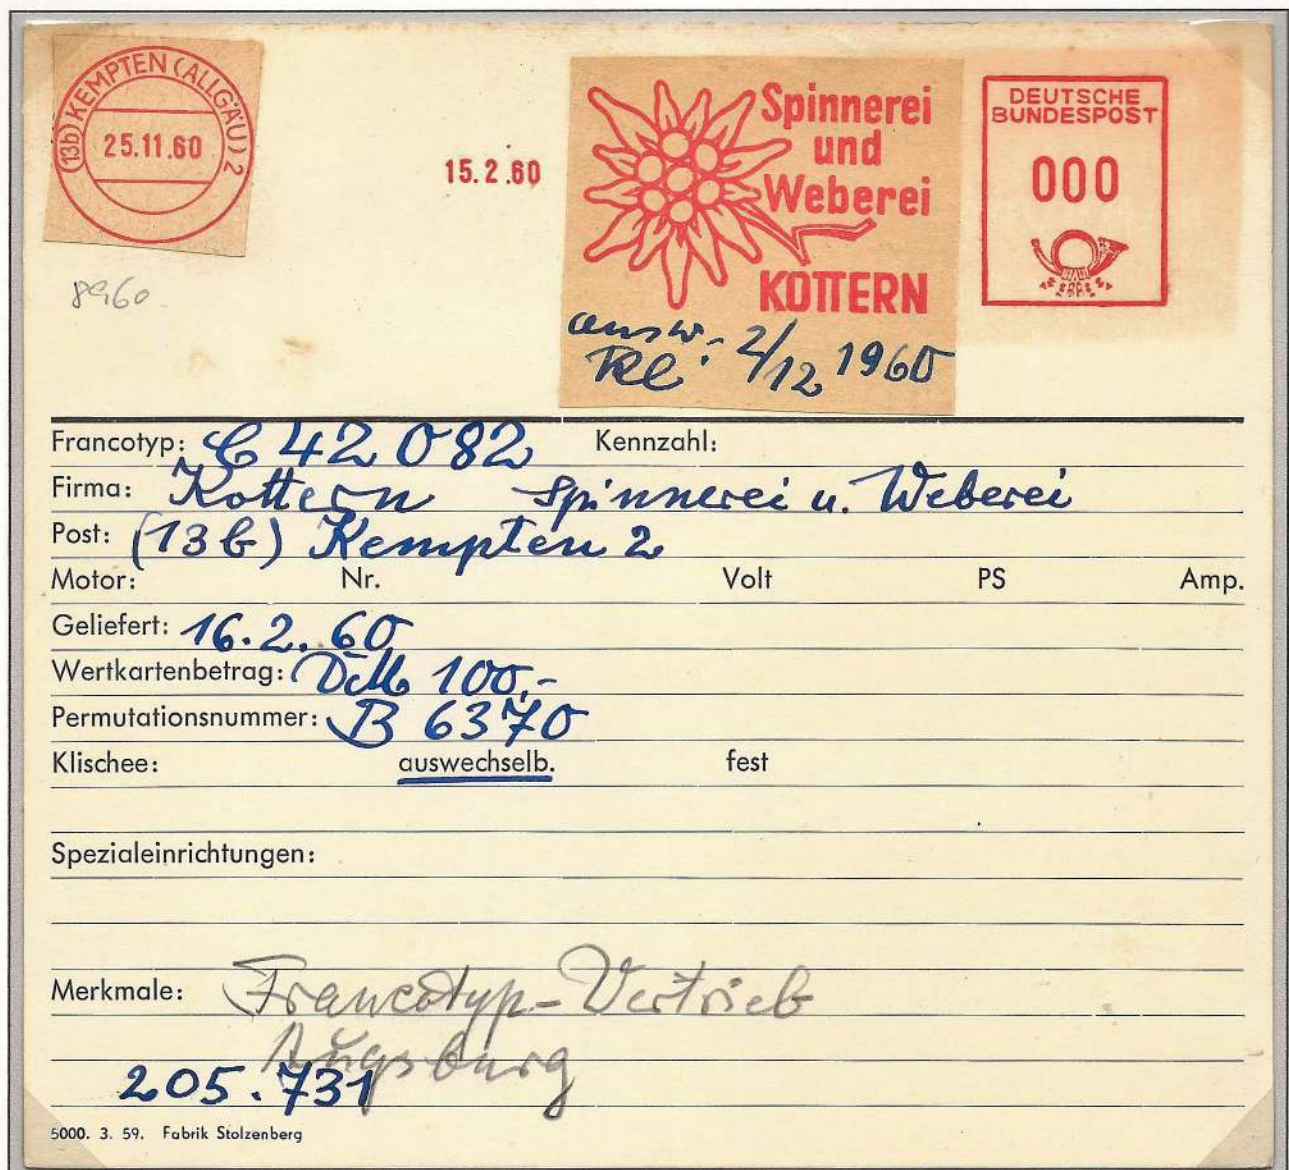 (13b) KEMPTEN (ALLGÄU) 2
25.11.60
15.2.60
Spinnerei
und
Weberei
KOTTERN
DEUTSCHE
BUNDESPOST
000
8960
ausw.
Kl. 2/12 1960
Francotyp: C 42 082 Kennzahl:
Firma: Kottern Spinnerei u. Weberei
Post: (13b) Kempten 2
Motor: Nr. Volt PS Amp.
Geliefert: 16.2.60
Wertkartenbetrag: DM 100,-
Permutationsnummer: B 6370
Klischee: auswechselb. fest
Spezialeinrichtungen:
Merkmale: Francotyp-Vertrieb
Augsburg
205.731
5000. 3. 59. Fabrik Stolzenberg